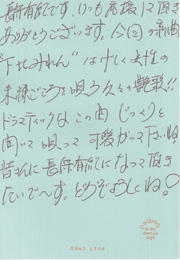 長保有紀です。いつも応援して頂き
ありがとうございます。今回の新曲
"下北みれん"は けしく 女性の
未練ごころを唄う 久々の艶歌!!
ドラマティックなこの曲 じっくりと
聞いて 唄って 可愛がって下さいね。
皆さんに長保有紀になって頂き
たいで〜す。どうぞよろしくね!